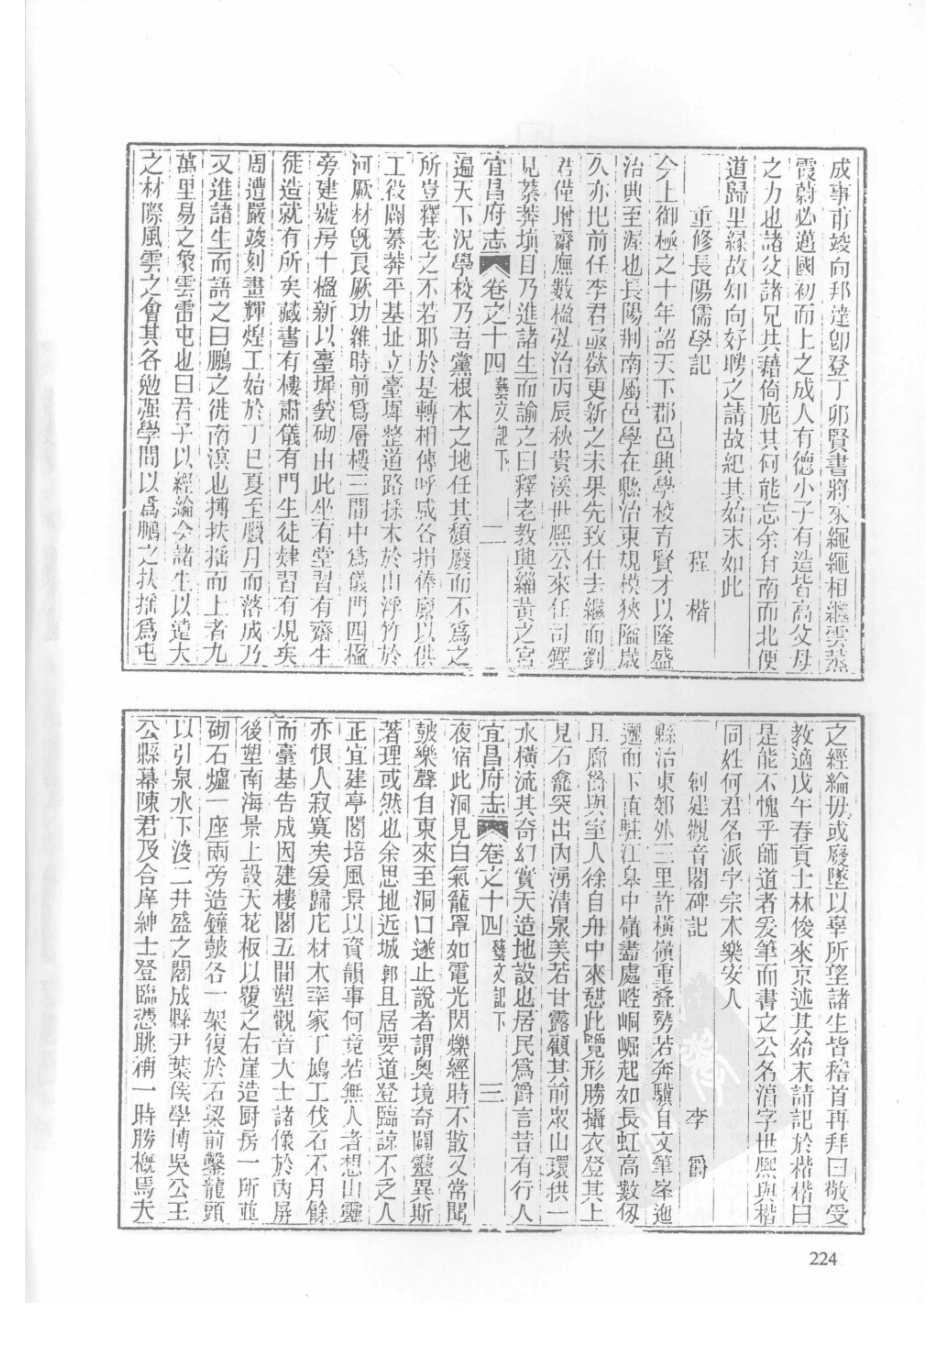 成事甫竣向邦達卽登丁卯賢書將來繩繩相繼雲蒸
霞蔚必邁國初而上之成人有德小子有造皆高父母
之力也諸父諸兄共藉倚庇其何能忘余自南而北便
道歸里緣故知向好聘之請故紀其始末如此
重修長陽儒學記 程楷
今上御極之十年詔天下郡邑興學校育賢才以隆盛
治典至渥也長陽荆南屬邑學在縣治東規模狹隘歲
久亦圯前任李君亟欲更新之未果先致仕去繼而劉
君僅增齋廡數楹弘治丙辰秋貴溪世熙公來任司鐸
見蓁莽塡目乃進諸生而諭之曰釋老教與緇黃之宮
宜昌府志 卷之十四 藝文記下 二
遍天下況學校乃吾黨根本之地任其頹廢而不爲之
所豈釋老之不若耶於是轉相傳呼咸各捐俸廩以供
工役闢蓁莽平基址立臺墀整道路採木於山浮竹於
河厥材旣良厥功維時前爲層樓三間中爲儀門四楹
旁建號房十楹新以臺墀甃砌由此坐有堂習有齋生
徒造就有所矣藏書有樓肅儀有門生徒肄習有規矣
周遭嚴竣刻畫輝煌工始於丁巳夏至臘月而落成乃
又進諸生而語之曰鵬之徙南溟也搏扶搖而上者九
萬里易之象雲雷屯也曰君子以經綸今諸生以遠大
之材際風雲之會其各勉强學問以爲鵬之扶搖爲屯
之經綸毋或廢墜以辜所望諸生皆稽首再拜曰敬受
教適戊午春貢士林俊來京述其始末請記於楷楷曰
是能不愧乎師道者爰筆而書之公名淯字世熙與楷
同姓何君名派字宗木樂安人
創建觀音閣碑記 李爵
縣治東郊外三里許橫嶺重叠勢若奔驥自文筆峯迤
邐而下直駐江皋中嶺盡處崆峒崛起如長虹高數仭
且廊爵與室人徐自舟中來憇此覽形勝攝衣登其上
見石龕突出內湧清泉美若甘露顧其前衆山環拱一
水橫流其奇幻實天造地設也居民爲爵言昔有行人
宜昌府志 卷之十四 藝文記下 三
夜宿此洞見白氣籠罩如電光閃爍經時不散又常聞
鼓樂聲自東來至洞口遂止說者謂奥境奇闢靈異斯
著理或然也余思地近城郭且居要道登臨諒不乏人
正宜建亭閣培風景以資韻事何竟若無人者想山靈
亦恨人寂寞矣爰歸庀材木率家丁鳩工伐石不月餘
而臺基告成因建樓閣五間塑觀音大士諸像於內屏
後塑南海景上設天花板以覆之右崖造厨房一所並
砌石爐一座兩旁造鐘鼓各一架復於石梁前鑿龍頭
以引泉水下浚二井盛之閣成縣尹葉侯學博吳公王
公縣幕陳君及合庠紳士登臨憑眺稱一時勝概焉夫
224